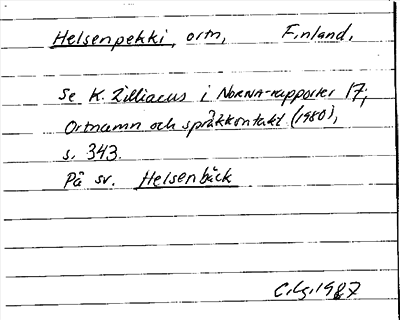 Helsenpekki, ortn, Finland.
Se K. Zilliacus i NORNA-rapporter 17;
Ortnamn och språkkontakt (1980),
s. 343.
På sv. Helsenbäck
C.Lg. 1987